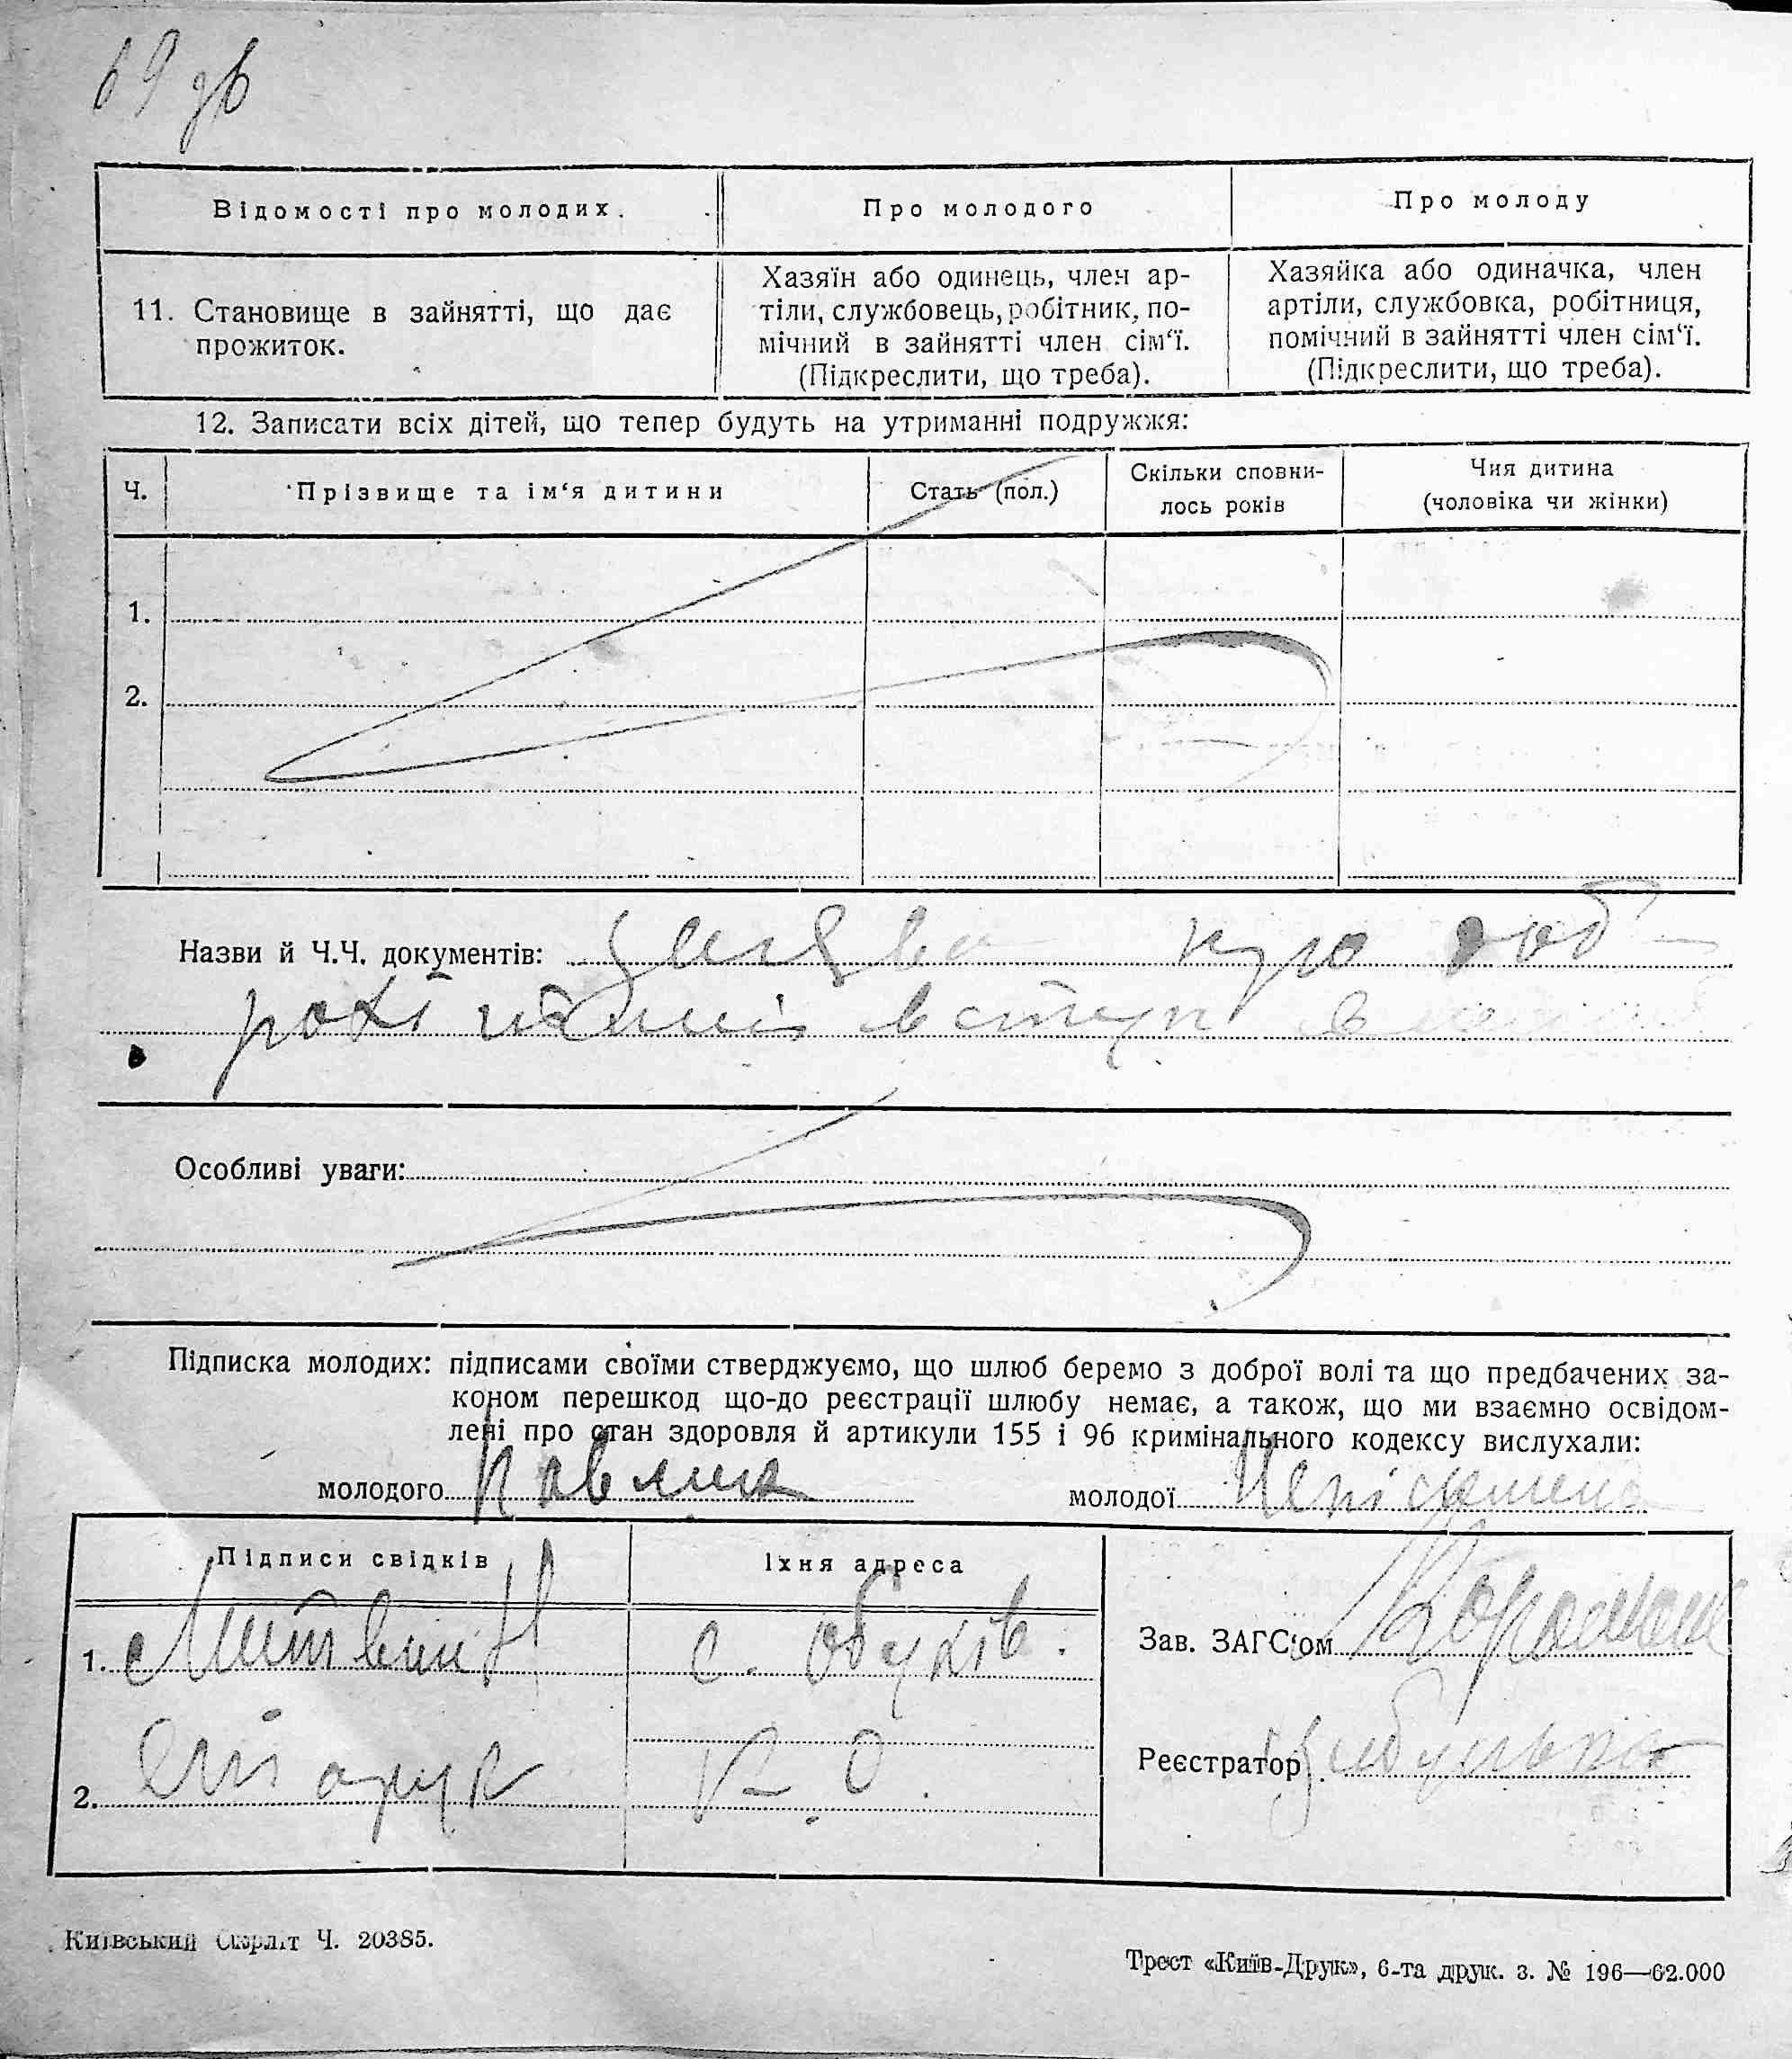 69 зв
Відомості про молодих.
Про молодого
Про молоду
11. Становище в зайнятті, що дає
прожиток.
Хазяїн або одинець, член ар-
тіли, службовець, робітник, по-
мічний в зайнятті член сім‘ї.
(Підкреслити, що треба).
Хазяйка або одиначка, член
артіли, службовка, робітниця,
помічний в зайнятті член сім‘ї.
(Підкреслити, що треба).
12. Записати всіх дітей, що тепер будуть на утриманні подружжя:
Ч.
Прізвище та ім‘я дитини
Стать (пол.)
Скільки сповни-
лось років
Чия дитина
(чоловіка чи жінки)
1.
2.
Назви й Ч.Ч. документів: заява про доб-
вступ в
Особливі уваги:
Підписка молодих: підписами своїми стверджуємо, що шлюб беремо з доброї волі та що предбачених за-
коном перешкод що-до реєстрації шлюбу немає, а також, що ми взаємно освідом-
лені про стан здоровля й артикули 155 і 96 кримінального кодексу вислухали:
молодого
молодої
Підписи свідків
Їхня адреса
1. Литвин
с. Обухів.
2.
Зав. ЗАГС‘ом
Реєстратор
Київський Окрліт Ч. 20385.
Трест «Київ-Друк», 6-та друк. з. № 196—62.000